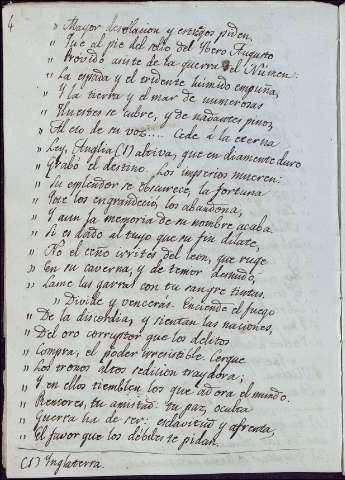 4
" Mayor desolacion y estragos piden,
" Que al pie del solio del Ybero Augusto
" Movido asiste de la guerra el Númen:
" La espada y el tridente húmido empuña,
" Y la tierra y el mar de numerosas
" Huestes se cubre, y de nadantes pinos,
" Al eco de su voz..... Cede á la eterna
" Ley, Anglia (1) altiva, que en diamante duro
" Grabó el destino. Los imperios mueren:
" Su esplendor se obscurece, la fortuna
" Que los engrandeció, los abandona,
" Y aun la memoria de su nombre acaba.
" Si es dado al tuyo que su fin dilate,
" No el ceño irrites del leon, que ruge
" En su caverna, y de temor desnudo,
" Lame las garras con tu sangre tintas.
" Divide y vencerás. Enciende el fuego
" De la discordia, y sientan las naciones,
" Del oro corruptor que los delitos
" Compra, el poder irresistible. Cerque
" Los tronos altos sedicion traydora;
" Y en ellos tiemblen los que adora el mundo.
" Rencores, tu amistad: tu paz, oculta
" Guerra ha de ser: esclavitud y afrenta,
" El favor que los débiles te pidan.
(1) Inglaterra.